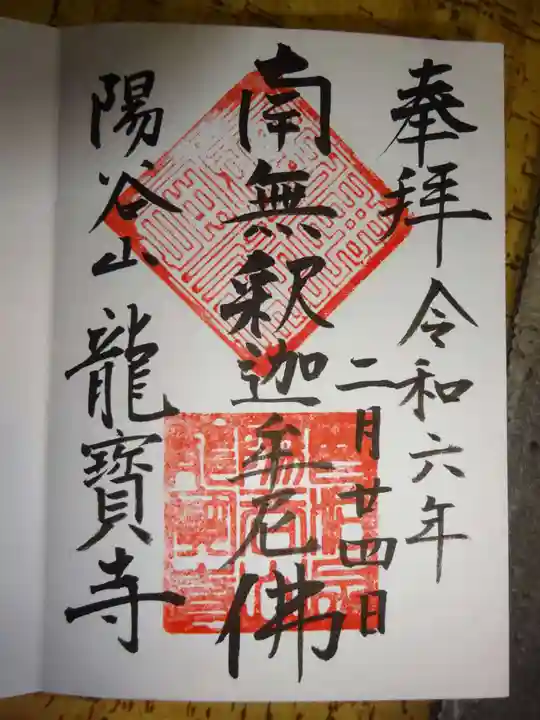 奉拝 令和六年
二月廿四日
南無釈迦牟尼佛
陽谷山 龍寳寺